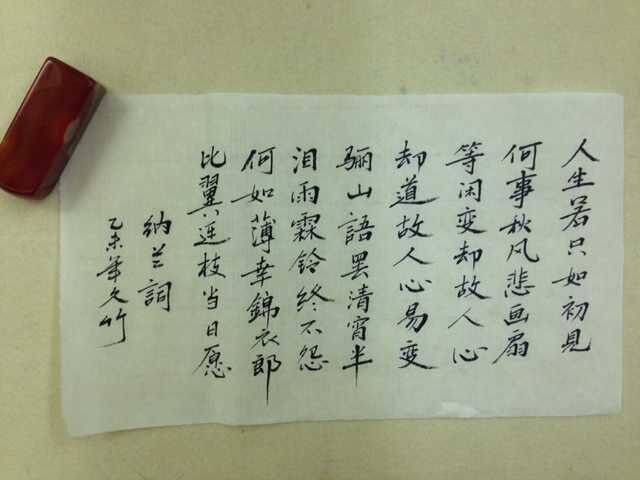 人生若只如初見
何事秋风悲画扇
等闲变却故人心
却道故人心易变
骊山語罢清宵半
泪雨霖铃终不怨
何如薄幸錦衣郎
比翼连枝当日愿
纳兰詞
乙未年久竹